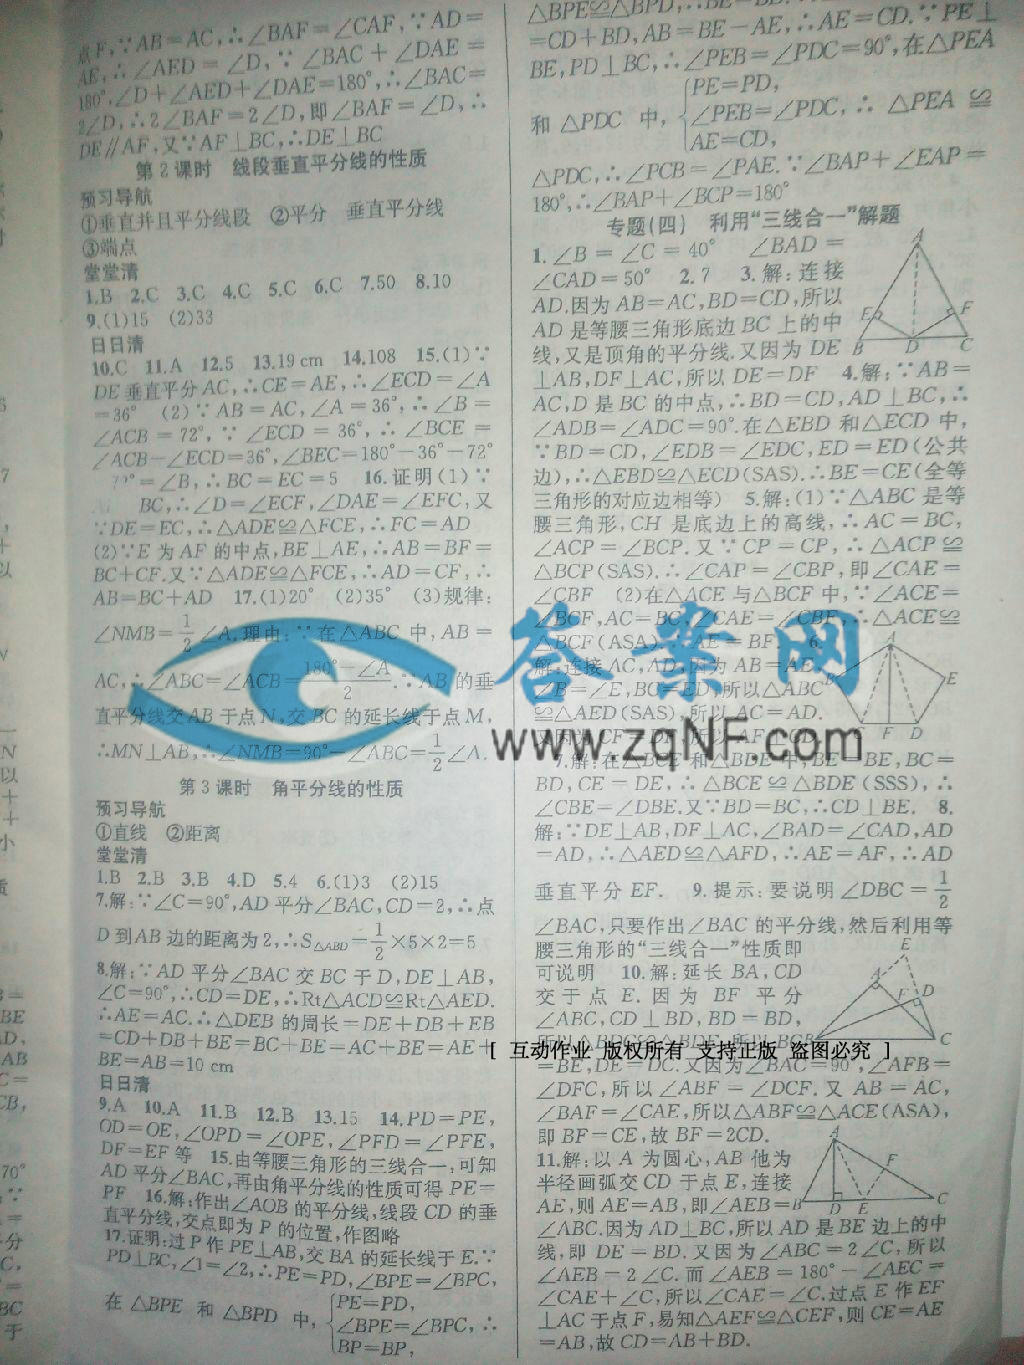 点F,∵AB=AC,∴∠BAF=∠CAF,∵AD=
AE,∴∠AED=∠D,∵∠BAC+∠DAE=
180°,∠D+∠AED+∠DAE=180°,∴∠BAC=
2∠D,∴2∠BAF=2∠D,即∠BAF=∠D,∴
DE∥AF,又∵AF⊥BC,∴DE⊥BC
第2课时 线段垂直平分线的性质
预习导航
①垂直并且平分线段 ②平分 垂直平分线
③端点
堂堂清
1.B 2.C 3.C 4.C 5.C 6.C 7.50 8.10
9.(1)15 (2)33
日日清
10.C 11.A 12.5 13.19 cm 14.108 15.(1)∵
DE垂直平分AC,∴CE=AE,∴∠ECD=∠A
=36° (2)∵AB=AC,∠A=36°,∴∠B=
∠ACB=72°,∵∠ECD=36°,∴∠BCE=
∠ACB-∠ECD=36°,∠BEC=180°-36°-72°
72°=∠B,∴BC=EC=5 16.证明(1)∵
BC,∴∠D=∠ECF,∠DAE=∠EFC,又
∵DE=EC,∴△ADE≌△FCE,∴FC=AD
(2)∵E为AF的中点,BE⊥AE,∴AB=BF=
BC+CF.又∵△ADE≌△FCE,∴AD=CF,∴
AB=BC+AD 17.(1)20° (2)35° (3)规律:
∠NMB=1/2∠A,理由:∵在△ABC中,AB=
AC,∴∠ABC=∠ACB=(180°-∠A)/2.∵AB的垂
直平分线交AB于点N,交BC的延长线于点M,
∴MN⊥AB,∴∠NMB=90°-∠ABC=1/2∠A.
第3课时 角平分线的性质
预习导航
①直线 ②距离
堂堂清
1.B 2.B 3.B 4.D 5.4 6.(1)3 (2)15
7.解:∵∠C=90°,AD平分∠BAC,CD=2,∴点
D到AB边的距离为2,∴S△ABD=1/2×5×2=5
8.解:∵AD平分∠BAC交BC于D,DE⊥AB,
∠C=90°,∴CD=DE,∴Rt△ACD≌Rt△AED.
∴AE=AC.∴△DEB的周长=DE+DB+EB
=CD+DB+BE=BC+BE=AC+BE=AE+
BE=AB=10 cm
日日清
9.A 10.A 11.B 12.B 13.15 14.PD=PE,
OD=OE,∠OPD=∠OPE,∠PFD=∠PFE,
DF=EF等 15.由等腰三角形的三线合一,可知
AD平分∠BAC,再由角平分线的性质可得PE=
PF 16.解:作出∠AOB的平分线,线段CD的垂
直平分线,交点即为P的位置,作图略
17.证明:过P作PE⊥AB,交BA的延长线于E.∵
PD⊥BC,∠1=∠2,∴PE=PD,∠BPE=∠BPC,
在△BPE和△BPD中,
PE=PD,
∠BPE=∠BPC,∴
BP=BP,
△BPE≌△BPD,∴BE=BD.
=CD+BD,AB=BE-AE,∴AE=CD.∵PE⊥
BE,PD⊥BC,∴∠PEB=∠PDC=90°,在△PEA
和△PDC中,
PE=PD,
∠PEB=∠PDC,∴△PEA≌
AE=CD,
△PDC,∴∠PCB=∠PAE.∵∠BAP+∠EAP=
180°,∴∠BAP+∠BCP=180°
专题(四) 利用“三线合一”解题
1.∠B=∠C=40° ∠BAD=
∠CAD=50° 2.7 3.解:连接
AD.因为AB=AC,BD=CD,所以
AD是等腰三角形底边BC上的中
线,又是顶角的平分线.又因为DE
⊥AB,DF⊥AC,所以DE=DF 4.解:∵AB=
AC,D是BC的中点,∴BD=CD,AD⊥BC,∴
∠ADB=∠ADC=90°.在△EBD和△ECD中,
∵BD=CD,∠EDB=∠EDC,ED=ED(公共
边),∴△EBD≌△ECD(SAS).∴BE=CE(全等
三角形的对应边相等) 5.解:(1)∵△ABC是等
腰三角形,CH是底边上的高线,∴AC=BC,
∠ACP=∠BCP.又∵CP=CP,∴△ACP≌
△BCP(SAS).∴∠CAP=∠CBP,即∠CAE=
∠CBF (2)在△ACE与△BCF中,∵∠ACE=
∠BCF,AC=BC,∠CAE=∠CBF,∴△ACE≌
△BCF(ASA).∴AE=BF 6.
解:连接AC,AD.因为AB=AE,
∠B=∠E,BC=ED,所以△ABC
≌△AED(SAS).所以AC=AD.
又因为CF=DF,所以AF⊥CD
7.解:在△BCE和△BDE中,BE=BE,BC=
BD,CE=DE,∴△BCE≌△BDE(SSS),∴
∠CBE=∠DBE.又∵BD=BC,∴CD⊥BE. 8.
解:∵DE⊥AB,DF⊥AC,∠BAD=∠CAD,AD
=AD,∴△AED≌△AFD,∴AE=AF,∴AD
垂直平分EF. 9.提示:要说明∠DBC=1/2
∠BAC,只要作出∠BAC的平分线,然后利用等
腰三角形的“三线合一”性质即
可说明 10.解:延长BA,CD
交于点E.因为BF平分
∠ABC,CD⊥BD,BD=BD,
所以△BDC≌△BDE,所以BC
=BE,DE=DC.又因为∠BAC=90°,∠AFB=
∠DFC,所以∠ABF=∠DCF.又AB=AC,
∠BAF=∠CAE,所以△ABF≌△ACE(ASA),
即BF=CE,故BF=2CD.
11.解:以A为圆心,AB他为
半径画弧交CD于点E,连接
AE,则AE=AB,即∠AEB=
∠ABC.因为AD⊥BC,所以AD是BE边上的中
线,即DE=BD.又因为∠ABC=2∠C,所以
∠AEB=2∠C.而∠AEB=180°-∠AEC=
∠CAE+∠C,所以∠CAE=∠C.过点E作EF
⊥AC于点F,易知△AEF≌△CEF,则CE=AE
=AB,故CD=AB+BD.
答案网
www.zqNF.com
[ 互动作业 版权所有 支持正版 盗图必究 ]